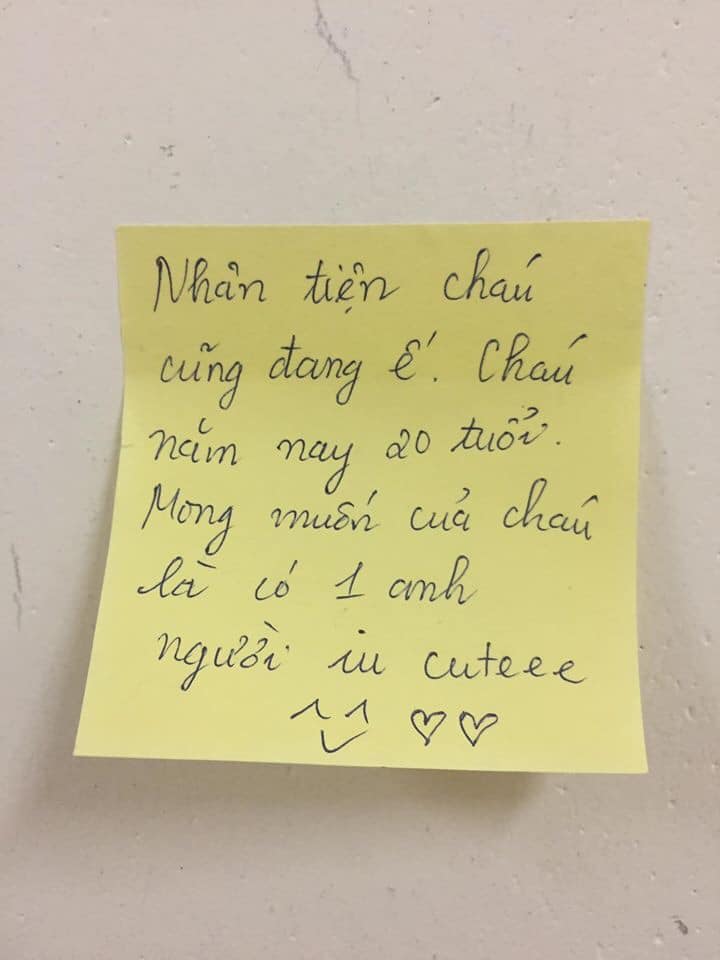 Nhân tiện cháu
cũng đang ế. Cháu
năm nay 20 tuổi.
Mong muốn của cháu
là có 1 anh
người iu cuteee
^_^ ♡♡